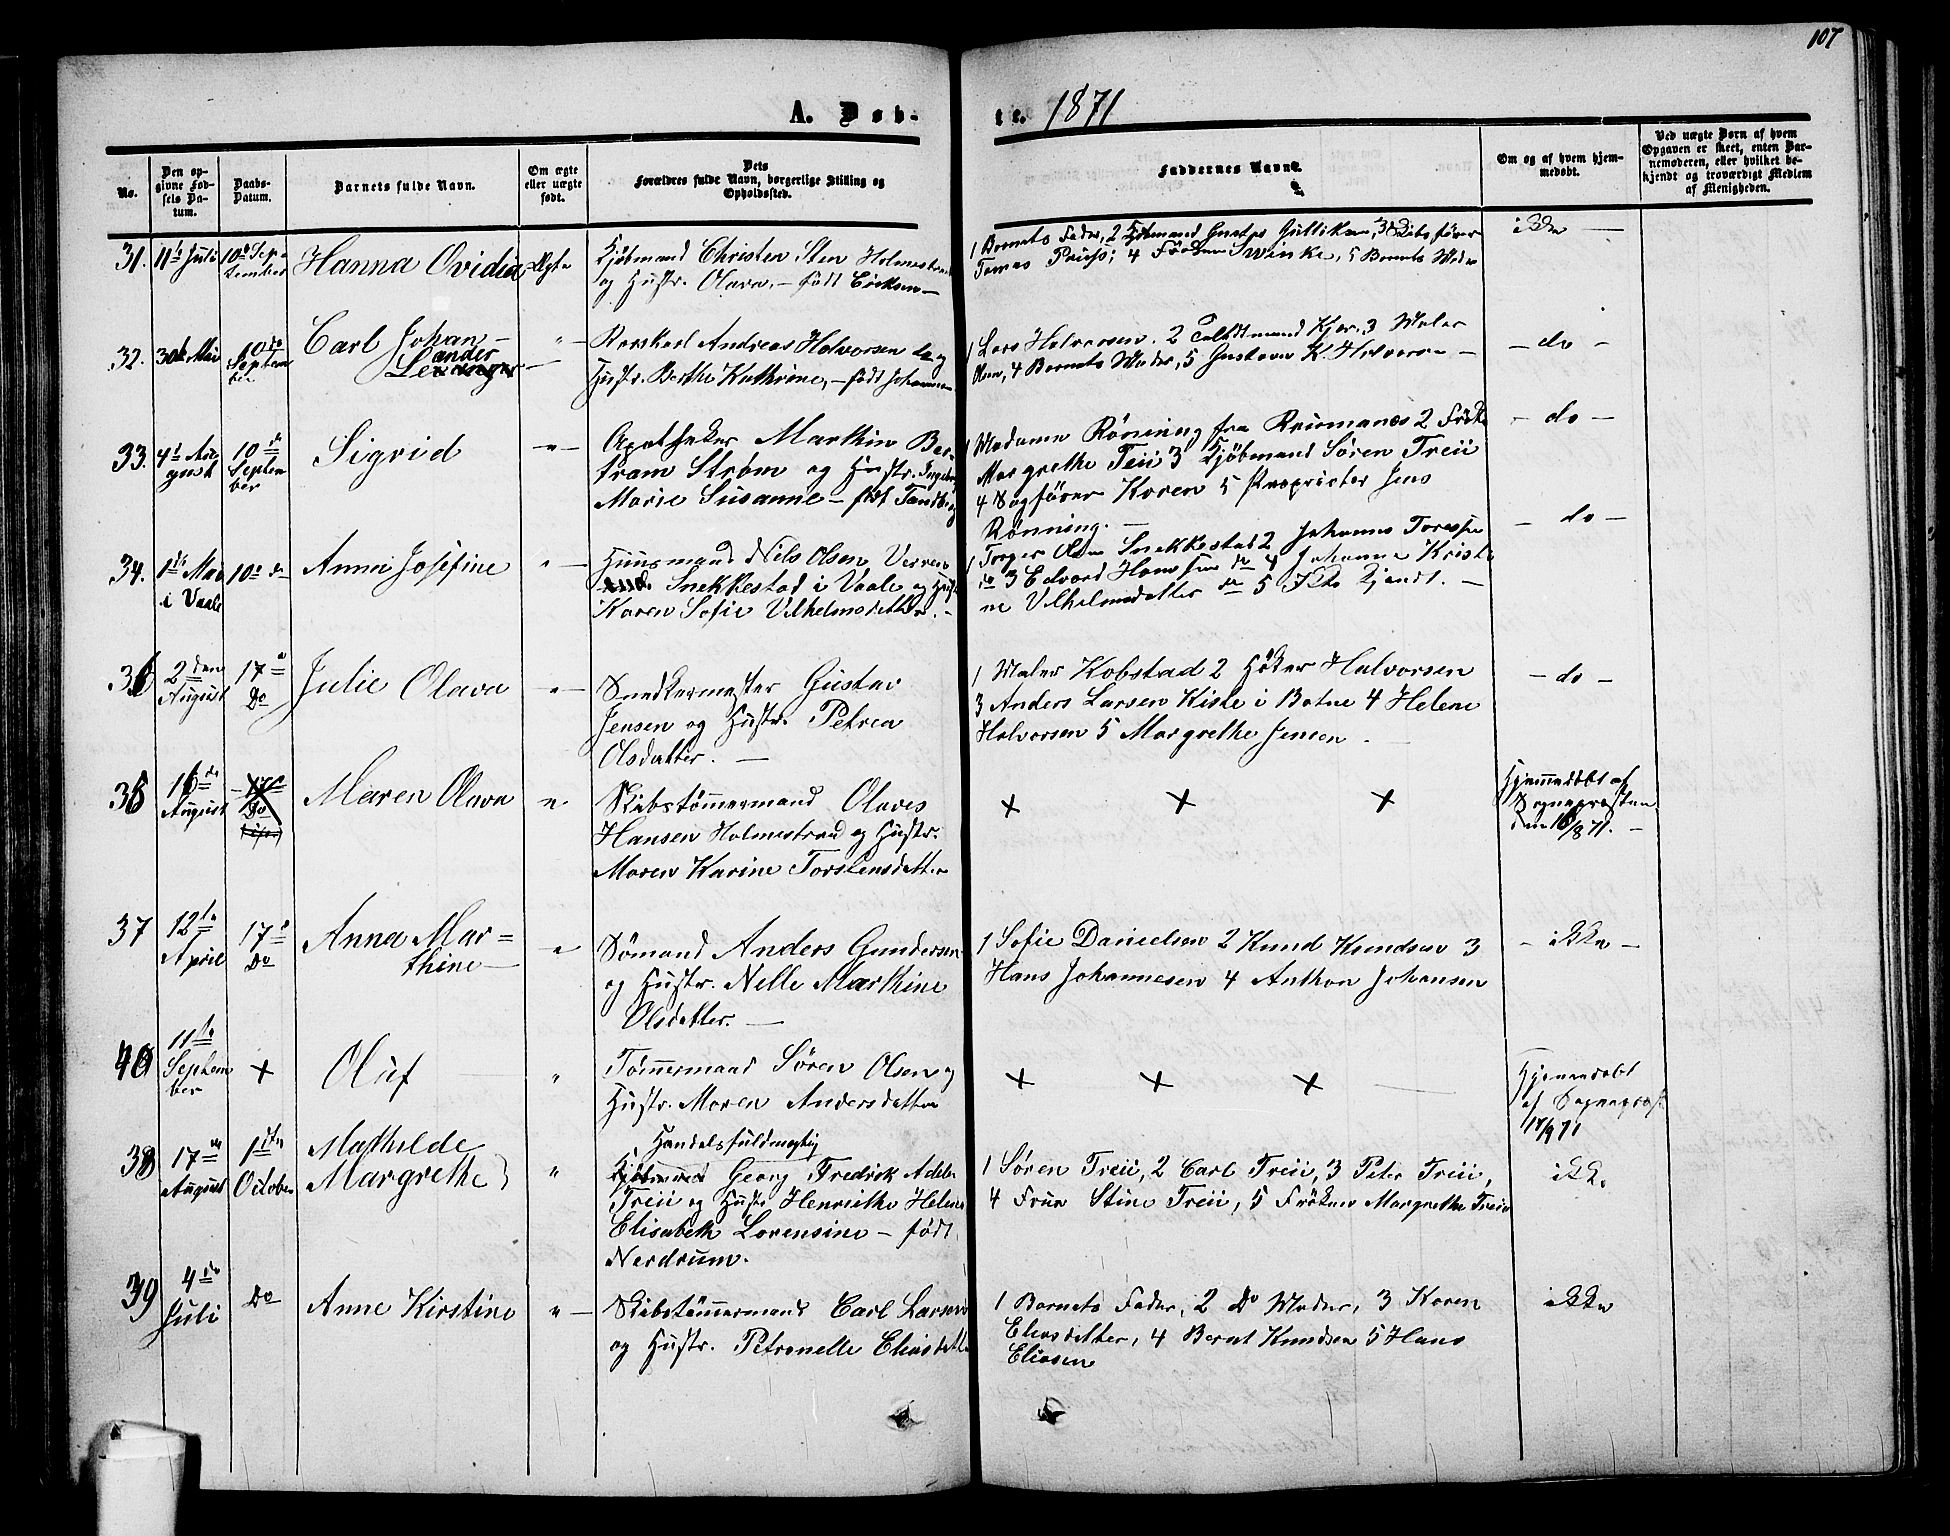 107
A. Døb-
te. 1871
No.
Den op-
givne Fød-
sels Da-
tum.
Daabs-
Datum.
Barnets fulde Navn.
Om ægte
eller uægte
født.
Dets
Forældres fulde Navn, borgerlige Stilling og
Opholdssted.
Faddernes Navne.
Om og af hvem hjem-
medøbt.
Ved uægte Børn af hvem
Opgaven er skeet, enten Bar-
nemoderen, eller hvilket be-
kjendt og troværdigt Medlem
af Menigheden.
31.
11te Juli
10de Sep-
tember
Hanna Ovidia
Ægte
Kjøbmand Christen Sten Holmestrand
og Hustr. Olava, – født Eriksen –
1 Barnets Fader, 2 Kjøbmand Gustav Gulliksen, 3 Skibsfører
Tomas Preuss; 4 Frøken Swinke, 5 Barnets Moder
ikke –
32.
30te Mai
10de
Septem
ber
Carl Johan –
Lexander
" –
Karskarl Andreas Halvorsen og
Hustr. Berthe Kathrine, – født Johannesen
1 Lars Halvorsen. 2 Toldtmand Kjær, 3 Maler
Olsen, 4 Barnets Moder, 5 Gustava K. Halvorsen –
– do –
33.
4de Au
gust
10de
Septem
ber
Sigrid
" –
Apotheker Marthin Ber-
tram Strøm og Hustr. Ingeborg
Marie Susanne – født Tandberg
1 Madamen Rønning fra 2 Frøken
Margrethe Treii 3 Kjøbmand Søren Treii
4 Sagfører Koren 5 Proprietær Jens
Rønning. –
– do –
34.
1de Mai
i Vaale
10de
Anna Josefine
" –
Huusmand Nils Olsen,
Snekkestad i Vaale og Hustr
Karen Sofie Vilhelmsdatter. –
1 Torger Olsen Snekkestad 2 Johannes
do 3 Edvard Hansen do 4 Johanne Kristi
ne Vilhelmsdatter do 5 –
– do –
36
2den
August
17de
Do
Julie Olava
" –
Snedkermester Gustav
Jensen og Hustr. Petrea
Olsdatter. –
1 Maler Kobstad 2 Høker Halvorsen
3 Anders Larsen Kisle i Botne 4 Helene
Halvorsen 5 Margrethe Jensen –
– do –
35
16de
August
Do
Maren Olava
"
Skibstømmermand Olaves
Hansen Holmestrand og Hustr.
Maren Karine Torstensdatter
× × ×
Hjemmedøbt af
Sognepresten
den 16/8 71. –
37
12te
April
17de
Do
Anna Mar=
thine –
"
Sømand Anders Gundersen
og Hustr. Nelle Marthine
Olsdatter. –
1 Sofie Danielsen 2 Knud Knudsen 3
Hans Johannesen 4 Anthon Johansen
– ikke –
40
11te
Septem
ber
×
Oluf
"
Tømmermand Søren Olsen og
Hustr. Maren Andersdatter
× × × –
Hjemmedøbt
af Sognepræst
17/9 71
38
17de
August
1ste
October
Mathilde
Margrethe
"
Handelsfuldmægtig
Kjøbmand Georg Fredrik Adeler
Treii og Hustr Henriette Helene
Elisabeth Lorensine – født
Nerdrum.
1 Søren Treii, 2 Carl Treii, 3 Peter Treii,
4 Frue Stine Treii, 5 Frøken Margrethe Treii
ikke
39
4de
Juli
Do
Anne Kirstine
" –
Skibstømmermand Carl Larsen
og Hustr. Petronelle Eliasdatter
1 Barnets Fader, 2 Do Moder, 3 Karen
Eliasdatter, 4 Bernt Knudsen 5 Hans
Eliasen
ikke